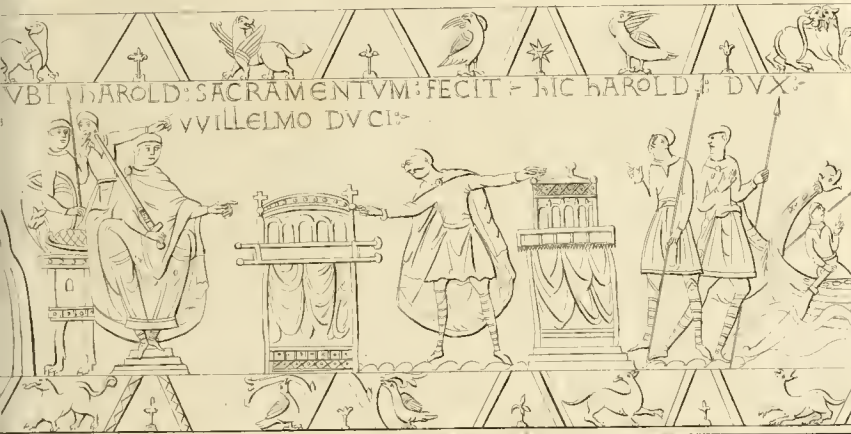 VBI hAROLD : SACRAMENTVM : FECIT :- hIC hAROLD : DVX :-
VVILLELMO DVCI :-